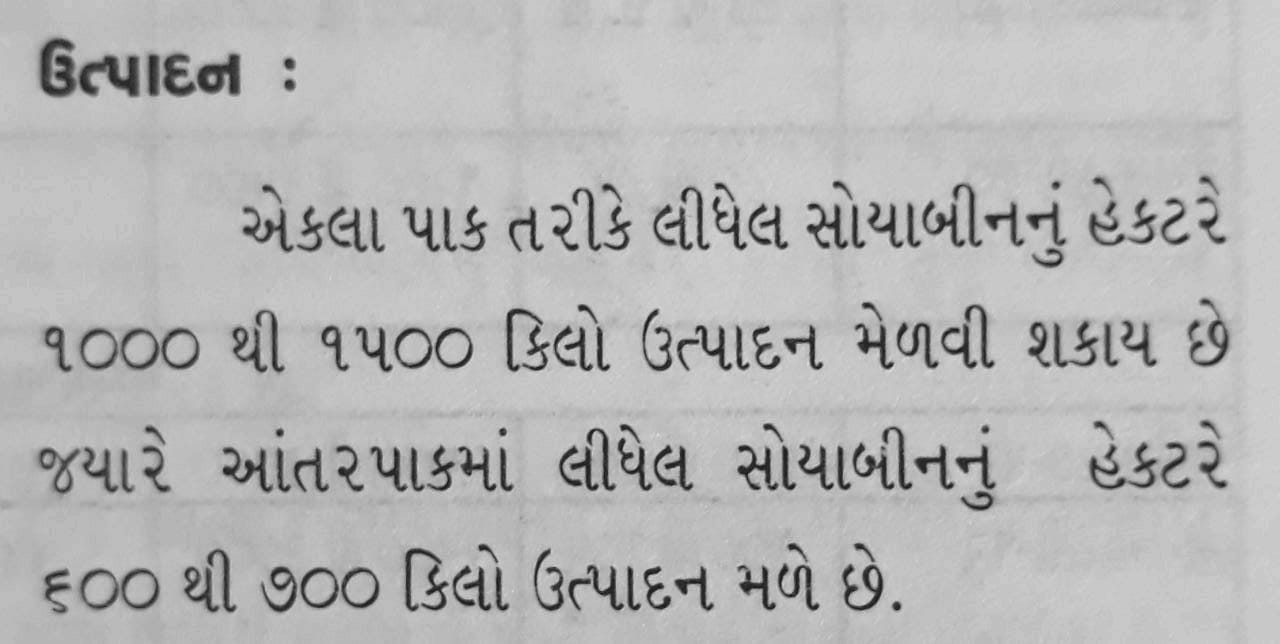 ઉત્પાદન :
એકલા પાક તરીકે લીધેલ સોયાબીનનું હેકટરે
૧૦૦૦ થી ૧૫૦૦ કિલો ઉત્પાદન મેળવી શકાય છે
જયારે આંતરપાકમાં લીધેલ સોયાબીનનું હેકટરે
૬૦૦ થી ૭૦૦ કિલો ઉત્પાદન મળે છે.